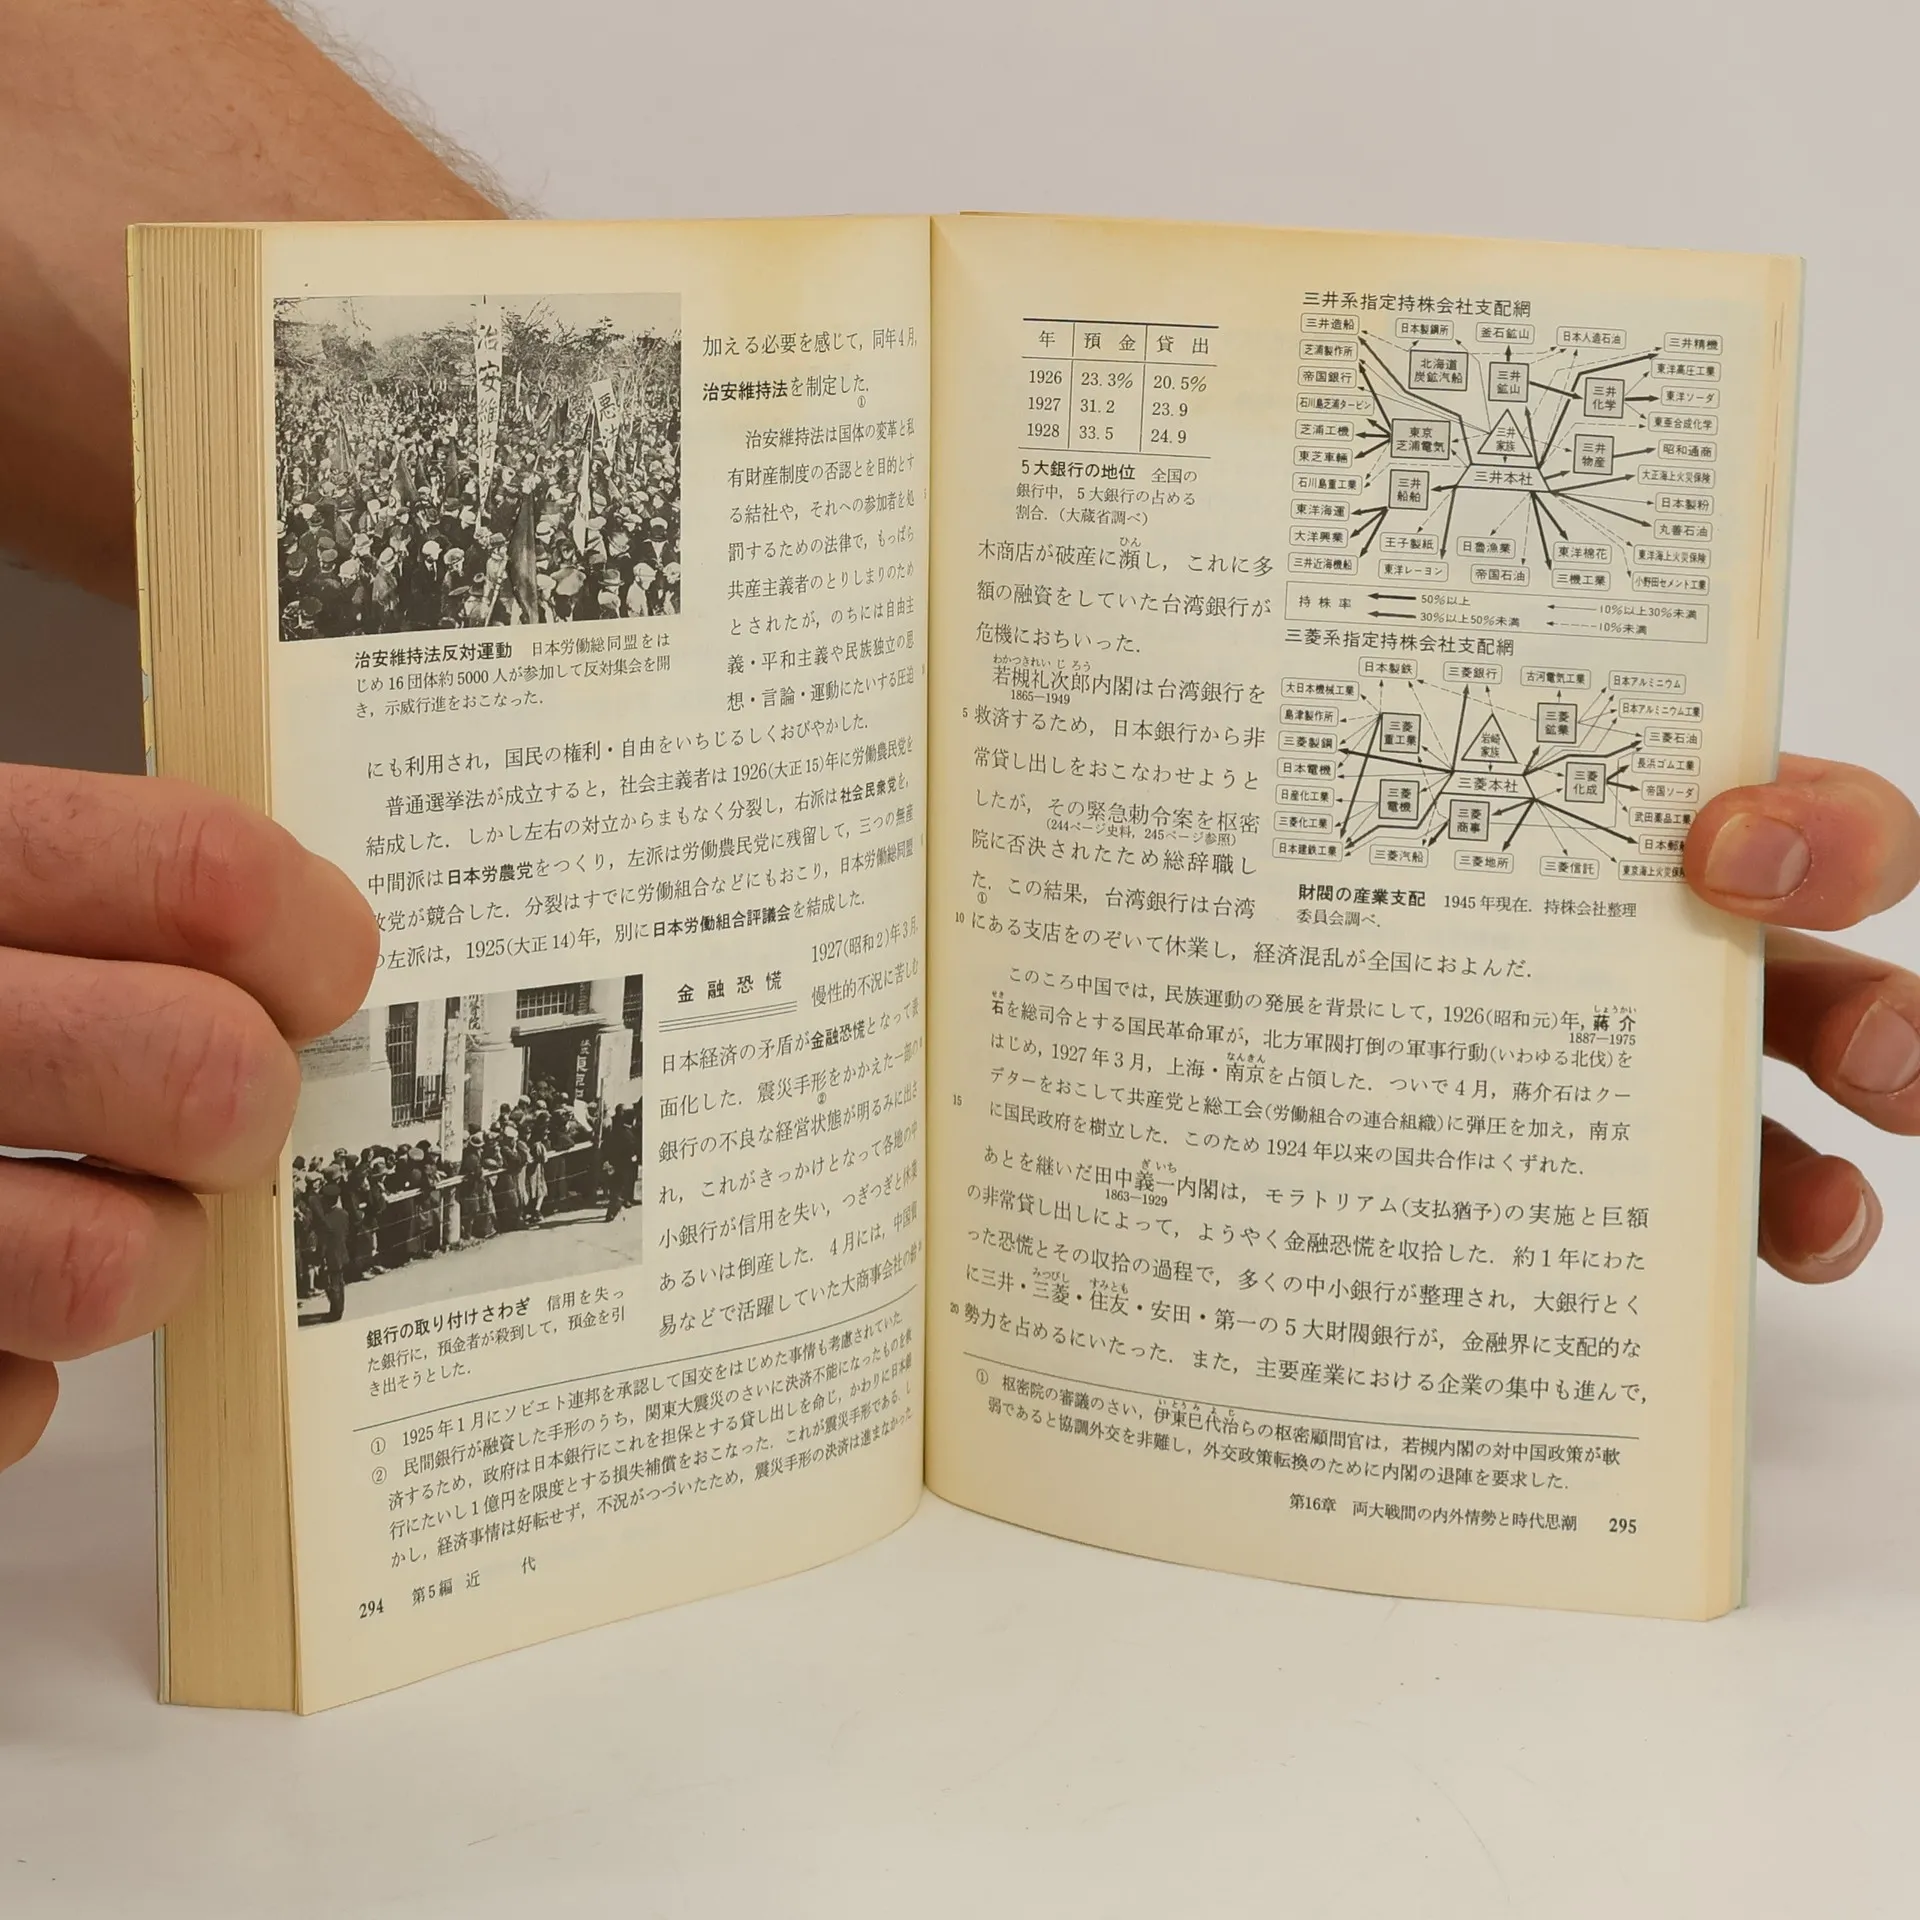 治安維持
悪法
加える必要を感じて，同年4月，
治安維持法を制定した．
①
治安維持法は国体の変革と私
有財産制度の否認とを目的とす
る結社や，それへの参加者を処
罰するための法律で，もっぱら
共産主義者のとりしまりのため
とされたが，のちには自由主
義・平和主義や民族独立の思
想・言論・運動にたいする圧迫
治安維持法反対運動　日本労働総同盟をは
じめ16団体約5000人が参加して反対集会を開
き，示威行進をおこなった．
にも利用され，国民の権利・自由をいちじるしくおびやかした．
普通選挙法が成立すると，社会主義者は1926(大正15)年に労働農民党を
結成した．しかし左右の対立からまもなく分裂し，右派は社会民衆党を，
中間派は日本労農党をつくり，左派は労働農民党に残留して，三つの無産
政党が競合した．分裂はすでに労働組合などにもおこり，日本労働総同盟
の左派は，1925(大正14)年，別に日本労働組合評議会を結成した．
金融恐慌
1927(昭和2)年3月，
慢性的不況に苦しむ
日本経済の矛盾が金融恐慌となって表
面化した．震災手形をかかえた一部の
②
銀行の不良な経営状態が明るみに出さ
れ，これがきっかけとなって各地の中
小銀行が信用を失い，つぎつぎと休業
あるいは倒産した．4月には，中国貿
易などで活躍していた大商事会社の鈴
銀行の取り付けさわぎ　信用を失っ
た銀行に，預金者が殺到して，預金を引
き出そうとした．
①　1925年1月にソビエト連邦を承認して国交をはじめた事情も考慮されていた．
②　民間銀行が融資した手形のうち，関東大震災のさいに決済不能になったものを救
済するため，政府は日本銀行にこれを担保とする貸し出しを命じ，かわりに日本銀
行にたいし1億円を限度とする損失補償をおこなった．これが震災手形である．し
かし，経済事情は好転せず，不況がつづいたため，震災手形の決済は進まなかった
294　第5編　近　代
年　預金　貸出
1926　23.3%　20.5%
1927　31.2　23.9
1928　33.5　24.9
5大銀行の地位　全国の
銀行中，5大銀行の占める
割合．(大蔵省調べ)
三井系指定持株会社支配網
三井造船
日本製鋼所
釜石鉱山
日本人造石油
三井精機
芝浦製作所
北海道炭鉱汽船
三井鉱山
三井化学
東洋高圧工業
帝国銀行
東洋ソーダ
石川島芝浦タービン
東亜合成化学
芝浦工機
東京芝浦電気
三井家族
三井物産
昭和通商
東芝車輛
三井本社
大正海上火災保険
石川島重工業
三井船舶
日本製粉
東洋海運
丸善石油
大洋興業
王子製紙
日魯漁業
東洋棉花
東洋海上火災保険
三井近海機船
東洋レーヨン
帝国石油
三機工業
小野田セメント工業
持株率　50%以上　10%以上30%未満
30%以上50%未満　10%未満
三菱系指定持株会社支配網
日本製鉄
三菱銀行
古河電気工業
日本アルミニウム
大日本機械工業
日本アルミニウム工業
島津製作所
三菱重工業
岩崎家族
三菱鉱業
三菱石油
三菱製鋼
長浜ゴム工業
日本電機
三菱本社
三菱化成
帝国ソーダ
日産化工業
三菱電機
三菱商事
武田薬品工業
三菱化工業
日本郵船
日本建鉄工業
三菱汽船
三菱地所
三菱信託
東京海上火災保険
財閥の産業支配　1945年現在．持株会社整理
委員会調べ．
ひん
木商店が破産に瀕し，これに多
額の融資をしていた台湾銀行が
危機におちいった．
わかつきれいじろう
若槻礼次郎内閣は台湾銀行を
1865—1949
5 救済するため，日本銀行から非
常貸し出しをおこなわせようと
したが，その緊急勅令案を枢密
(244ページ史料，245ページ参照)
院に否決されたため総辞職し
た．この結果，台湾銀行は台湾
①
10 にある支店をのぞいて休業し，経済混乱が全国におよんだ．
このころ中国では，民族運動の発展を背景にして，1926(昭和元)年，蔣介
しょうかい
1887—1975
せき
石を総司令とする国民革命軍が，北方軍閥打倒の軍事行動(いわゆる北伐)を
なんきん
はじめ，1927年3月，上海・南京を占領した．ついで4月，蔣介石はクー
デターをおこして共産党と総工会(労働組合の連合組織)に弾圧を加え，南京
15 に国民政府を樹立した．このため1924年以来の国共合作はくずれた．
ぎいち
あとを継いだ田中義一内閣は，モラトリアム(支払猶予)の実施と巨額
1863—1929
の非常貸し出しによって，ようやく金融恐慌を収拾した．約1年にわた
った恐慌とその収拾の過程で，多くの中小銀行が整理され，大銀行とく
みつびし　すみとも
に三井・三菱・住友・安田・第一の5大財閥銀行が，金融界に支配的な
20 勢力を占めるにいたった．また，主要産業における企業の集中も進んで，
いとうみよじ
①　枢密院の審議のさい，伊東巳代治らの枢密顧問官は，若槻内閣の対中国政策が軟
弱であると協調外交を非難し，外交政策転換のために内閣の退陣を要求した．
第16章　両大戦間の内外情勢と時代思潮　295